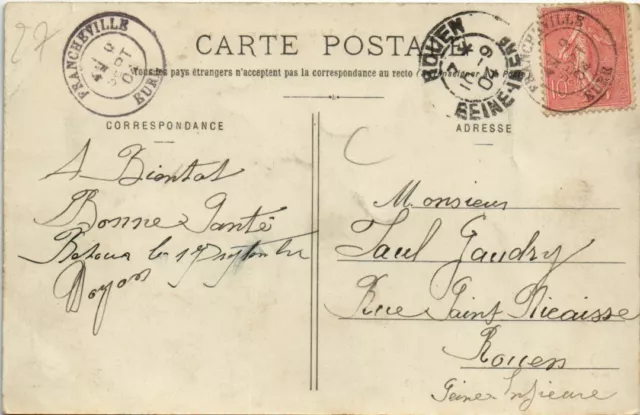 27
FRANCHEVILLE
EURE
CARTE POSTALE
Tous les pays étrangers n'acceptent pas la correspondance au recto
ROUEN
SEINE-INFRE
FRANCHEVILLE
EURE
10
CORRESPONDANCE
ADRESSE
A Bientot
Bonne Santé
Retour le 17 septembre
Monsieur
Paul Gaudry
Rue Saint Nicaisse
Rouen
Seine Inférieure